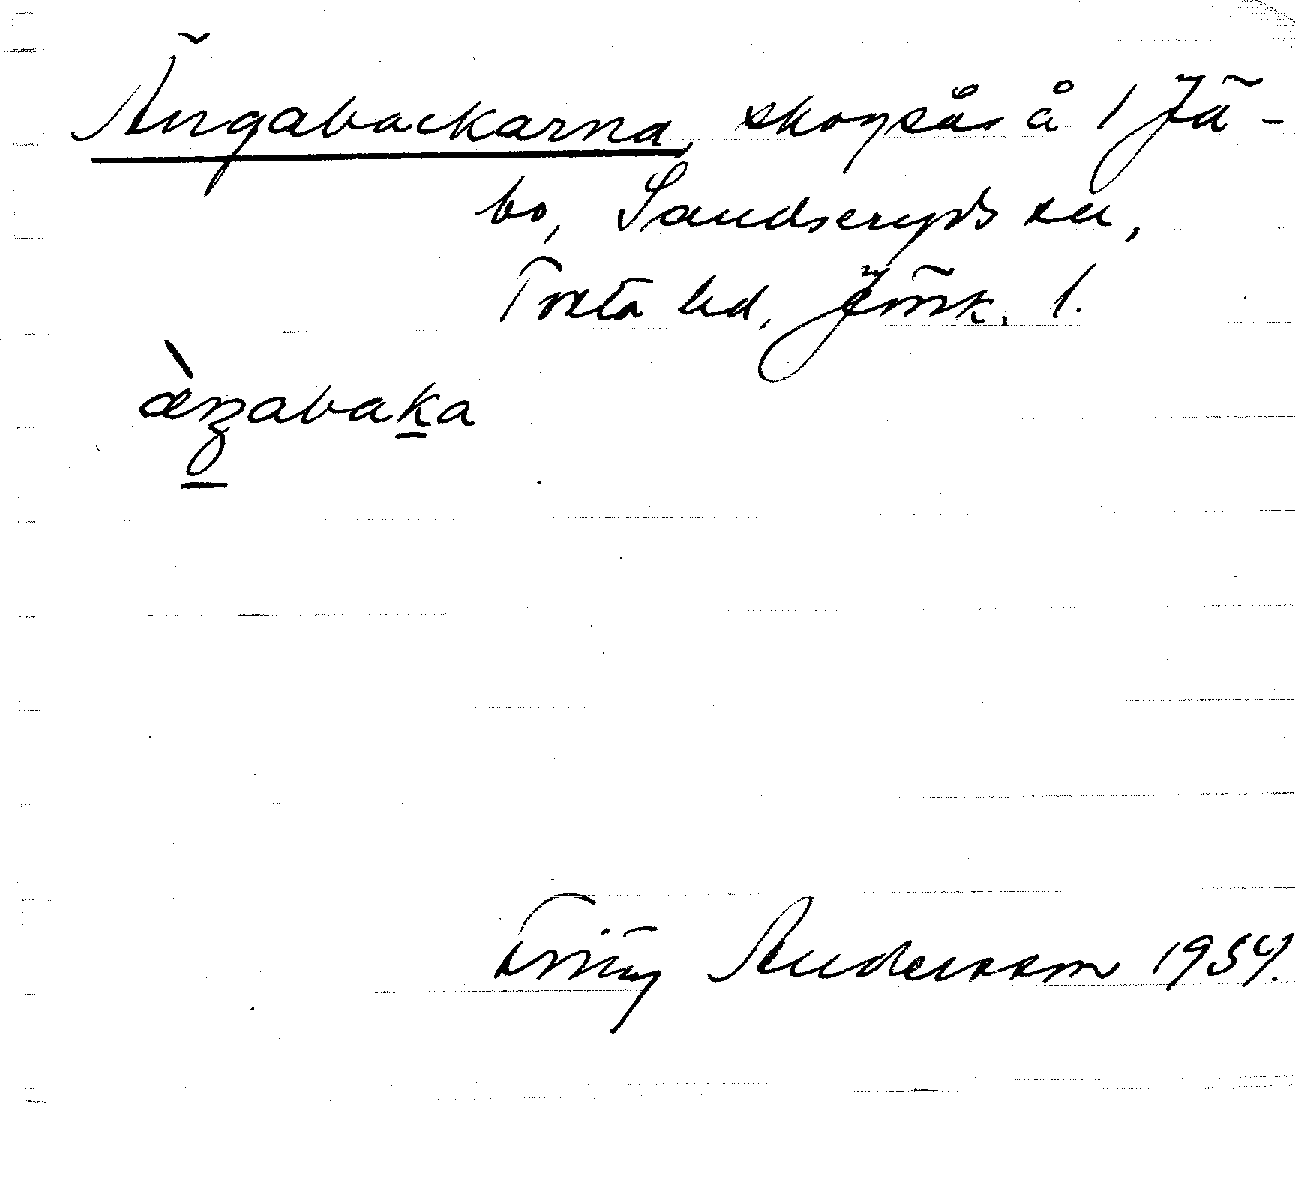 Ängabackarna, skogsås å 1 Jä-
bo, Sandseryds sn,
Tveta hd, Jönk. l.
æ̀ŋabaka
Fritz Andersson 1954.